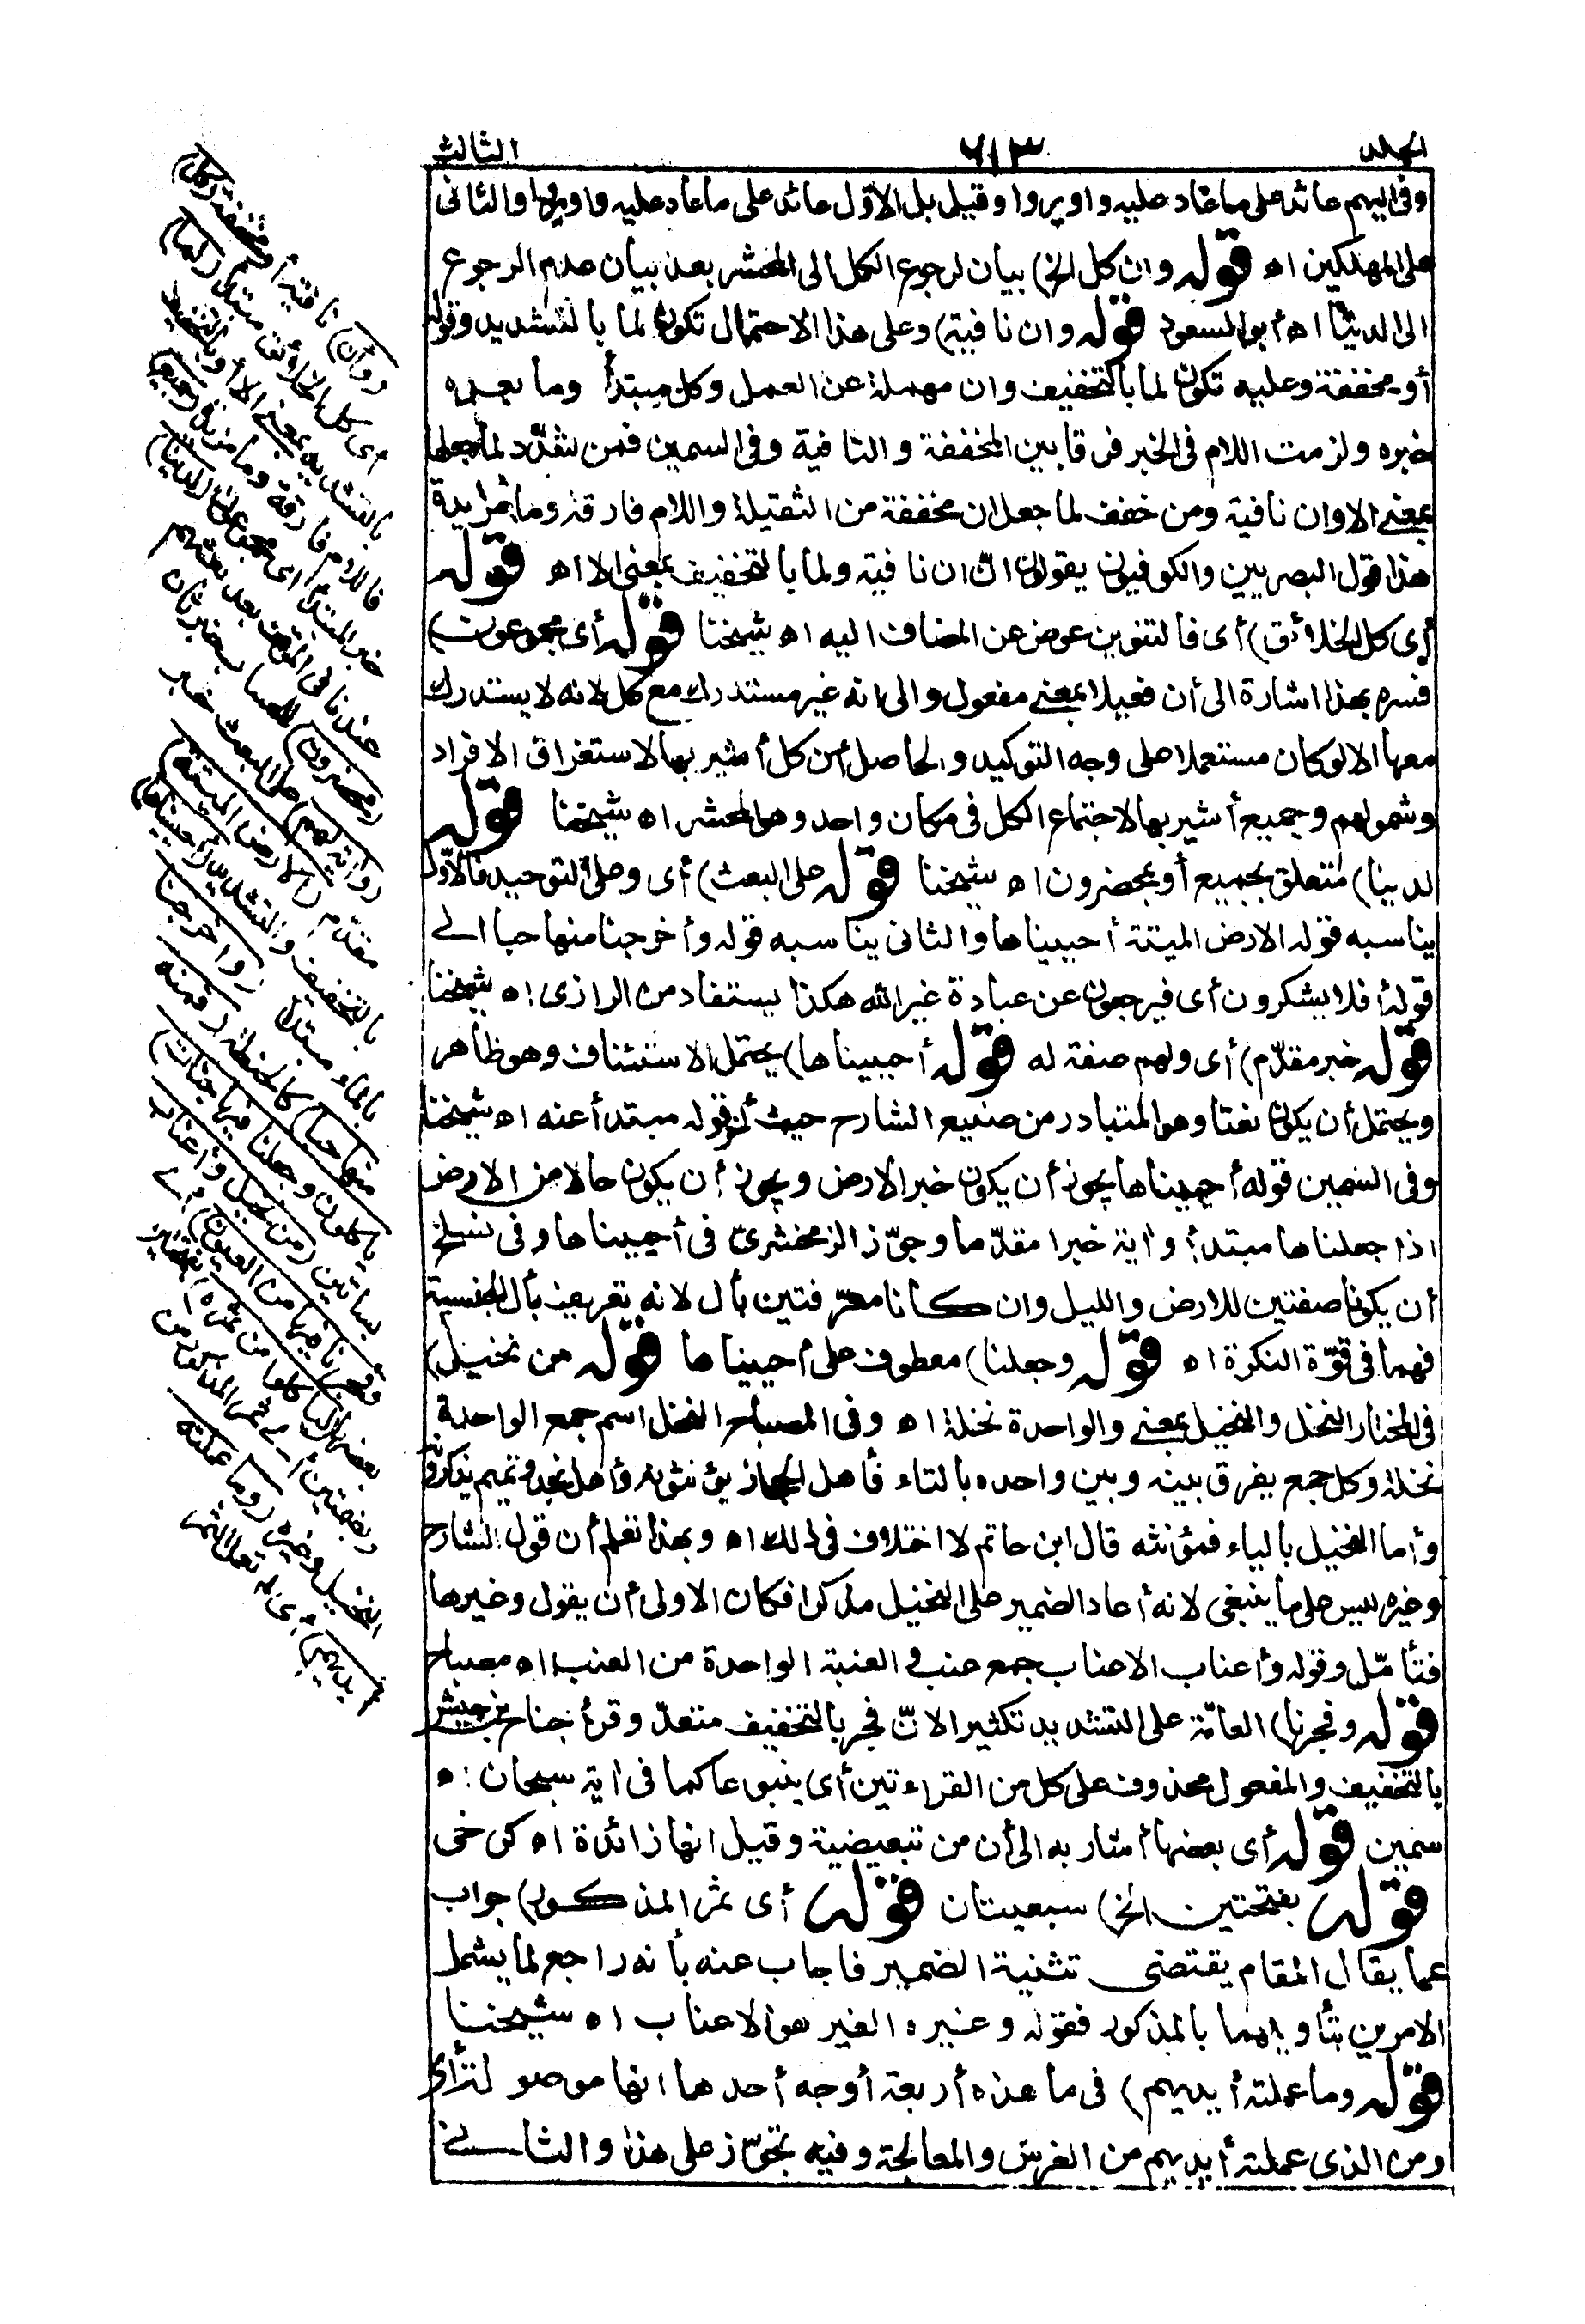 الجلد ٦١٣ الثالث
وفى اليهم عائد على ما عاد عليه واو يروا وقيل بل الاوّل عائد على ما عاد عليه واو يروا والثانى
على المهلكين اه قوله وان كل الخ) بيان لرجوع الكل الى المحشر بعد بيان عدم الرجوع
الى الدنيا اه أبو السعود قوله وان نافية) وعلى هذا الاحتمال تكون لما بالتشديد وقوله
أو مخففة وعليه تكون لما بالتخفيف وان مهملة عن العمل وكل مبتدأ وما بعده
خبره ولزمت اللام فى الخبر فرقا بين المخففة والنافية وفى السمين فمن شدّد لما جعلها
بمعنى الا وان نافية ومن خفف لما جعل ان مخففة من الثقيلة واللام فارقة وما مزيدة
هذا قول البصريين والكوفيون يقولون انّ ان نافية ولما بالتخفيف بمعنى الا اه قوله
أى كل الخلائق) أى فالتنوين عوض عن المضاف اليه اه شيخنا قوله أى مجموعون)
فسره بهذا اشارة الى أن فعيلا بمعنى مفعول والى انه غير مستدرك مع كل لانه لا يستدرك
معها الا لو كان مستعملا على وجه التوكيد والحاصل أن كل أشير بها لاستغراق الافراد
وشمولهم وجميع أشير بها لاجتماع الكل فى مكان واحد وهو المحشر اه شيخنا قوله
لدينا) متعلق بجميع أو بمحضرون اه شيخنا قوله على البعث) أى وعلى التوحيد فالاوّل
يناسبه قوله الارض الميتة أحييناها والثانى يناسبه قوله وأخرجنا منها حبا الى
قوله أفلا يشكرون أى فيرجعون عن عبادة غير الله هكذا يستفاد من الرازى اه شيخنا
قوله خبر مقدّم) أى ولهم صفة له قوله أحييناها) يحتمل الاستئناف وهو ظاهر
ويحتمل أن يكون نعتا وهو المتبادر من صنيع الشارح حيث أخر قوله مبتدأ عنه اه شيخنا
وفى السمين قوله أحييناها يجوز أن يكون خبر الارض ويجوز أن يكون حالا من الارض
اذا جعلناها مبتدأ وآية خبرا مقدّما وجوّز الزمخشرىّ فى أحييناها وفى نسلخ
أن يكونا صفتين للارض والليل وان كانا معرّفتين بأل لانه تعريف بأل الجنسية
فهما فى قوّة النكرة اه قوله وجعلنا) معطوف على أحييناها قوله من نخيل)
فى المختار النخل والنخيل بمعنى والواحدة نخلة اه وفى المصباح النخل اسم جمع الواحدة
نخلة وكل جمع يفرق بينه وبين واحده بالتاء فأهل الحجاز يؤنثونه وأهل نجد وتميم يذكرونه
وأما النخيل بالياء فمؤنثه قال ابن حاتم لا اختلاف فى ذلك اه وبهذا تعلم أن قول الشارح
وغيره ليس على ما ينبغى لانه أعاد الضمير على النخيل مذكرا فكان الاولى أن يقول وغيرها
فتأمّل وقوله وأعناب الاعناب جمع عنب والعنبة الواحدة من العنب اه مصباح
قوله وفجرنا) العامّة على التشديد تكثيرا لانّ فجر بالتخفيف متعدّ وقرأ جناح بن حبيش
بالتخفيف والمفعول محذوف على كل من القراءتين أى ينبوعا كما فى آية سبحان اه
سمين قوله أى بعضها أشار به الى أن من تبعيضية وقيل انها زائدة اه كرخى
قوله بفتحتين الخ) سبعيتان قوله أى ثمر المذكور) جواب
عما يقال المقام يقتضى تثنية الضمير فاجاب عنه بأنه راجع لما يشمل
الامرين بتأويلهما بالمذكور فقوله وغيره الغير هو الاعناب اه شيخنا
قوله وما عملته أيديهم) فى ما هذه أربعة أوجه أحدها انها موصولة أى
ومن الذى عملته أيديهم من الغرس والمعالجة وفيه تجوّز على هذا والثانى
(وان) نافية أو مخففة (كل)
أى كل الخلائق مبتدأ (لما)
بالتشديد بمعنى الا أو بالتخفيف
فاللام فارقة وما مزيدة (جميع)
خبر المبتدأ أى مجموعون (لدينا)
عندنا فى الموقف بعد بعثهم
(محضرون) للحساب خبر ثان
(وآية لهم) على البعث خبر
مقدّم (الارض الميتة)
بالتخفيف والتشديد (أحييناها)
بالماء مبتدأ (وأخرجنا
منها حبا) كالحنطة (فمنه
يأكلون وجعلنا فيها جنات)
بساتين (من نخيل وأعناب
وفجرنا فيها من العيون) أى
بعضها (ليأكلوا من ثمره)
بفتحتين أى ثمر المذكور من
النخيل وغيره (وما عملته
أيديهم) أى لم تعمل الثمر